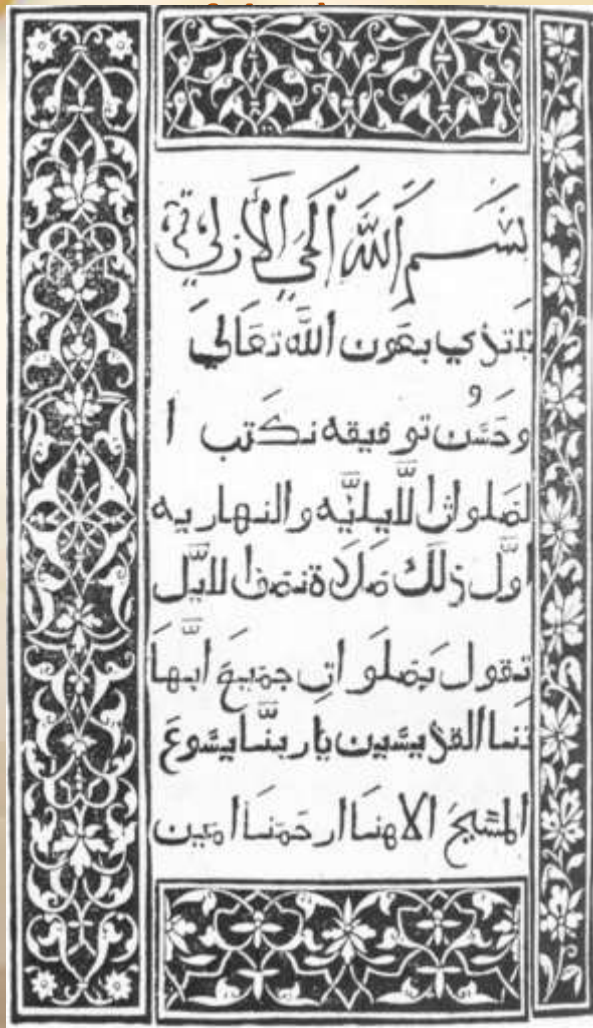 بسم الله الحي الازلي
نبتدي بعون الله تعالي
وحسن توفيقه نكتب ا
لصلواث الليليه والنهاريه
اول ذلك صلاة نصف الليل
تقول بصلوات جميع ابها
تنا القديسين يا ربنا يسوع
المسيح الاهنا ارحمنا امين